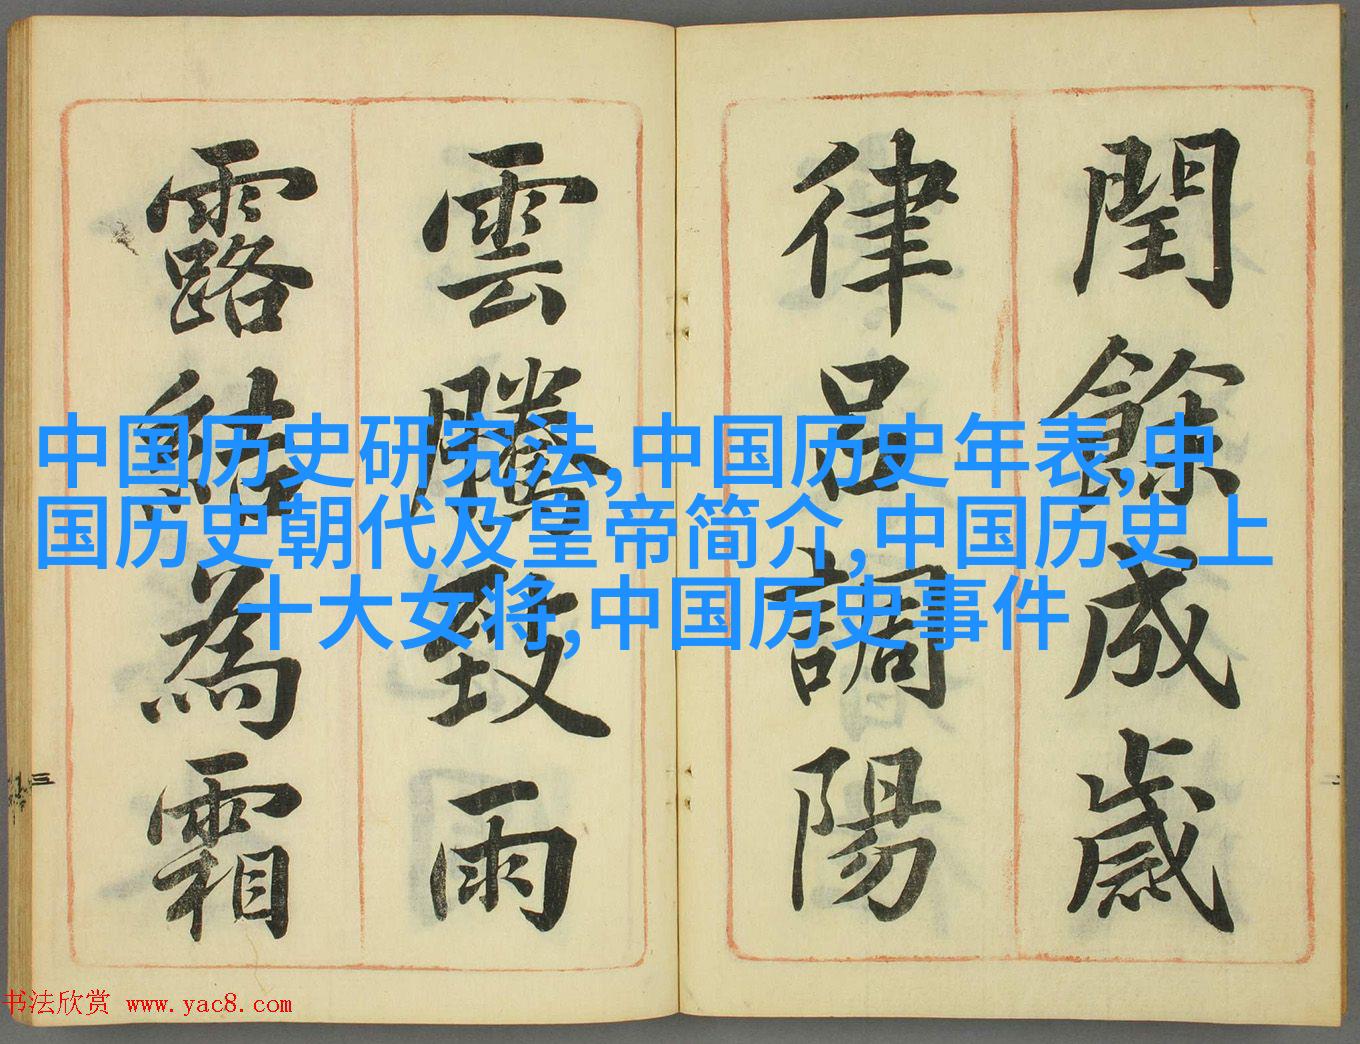 閏餘成歲
律呂調陽
雲騰致雨
露結為霜
中国历史研究法,中国历史年表,中
国历史朝代及皇帝简介,中国历史上
十大女将,中国历史事件
三
二
书法欣赏 www.yac8.com